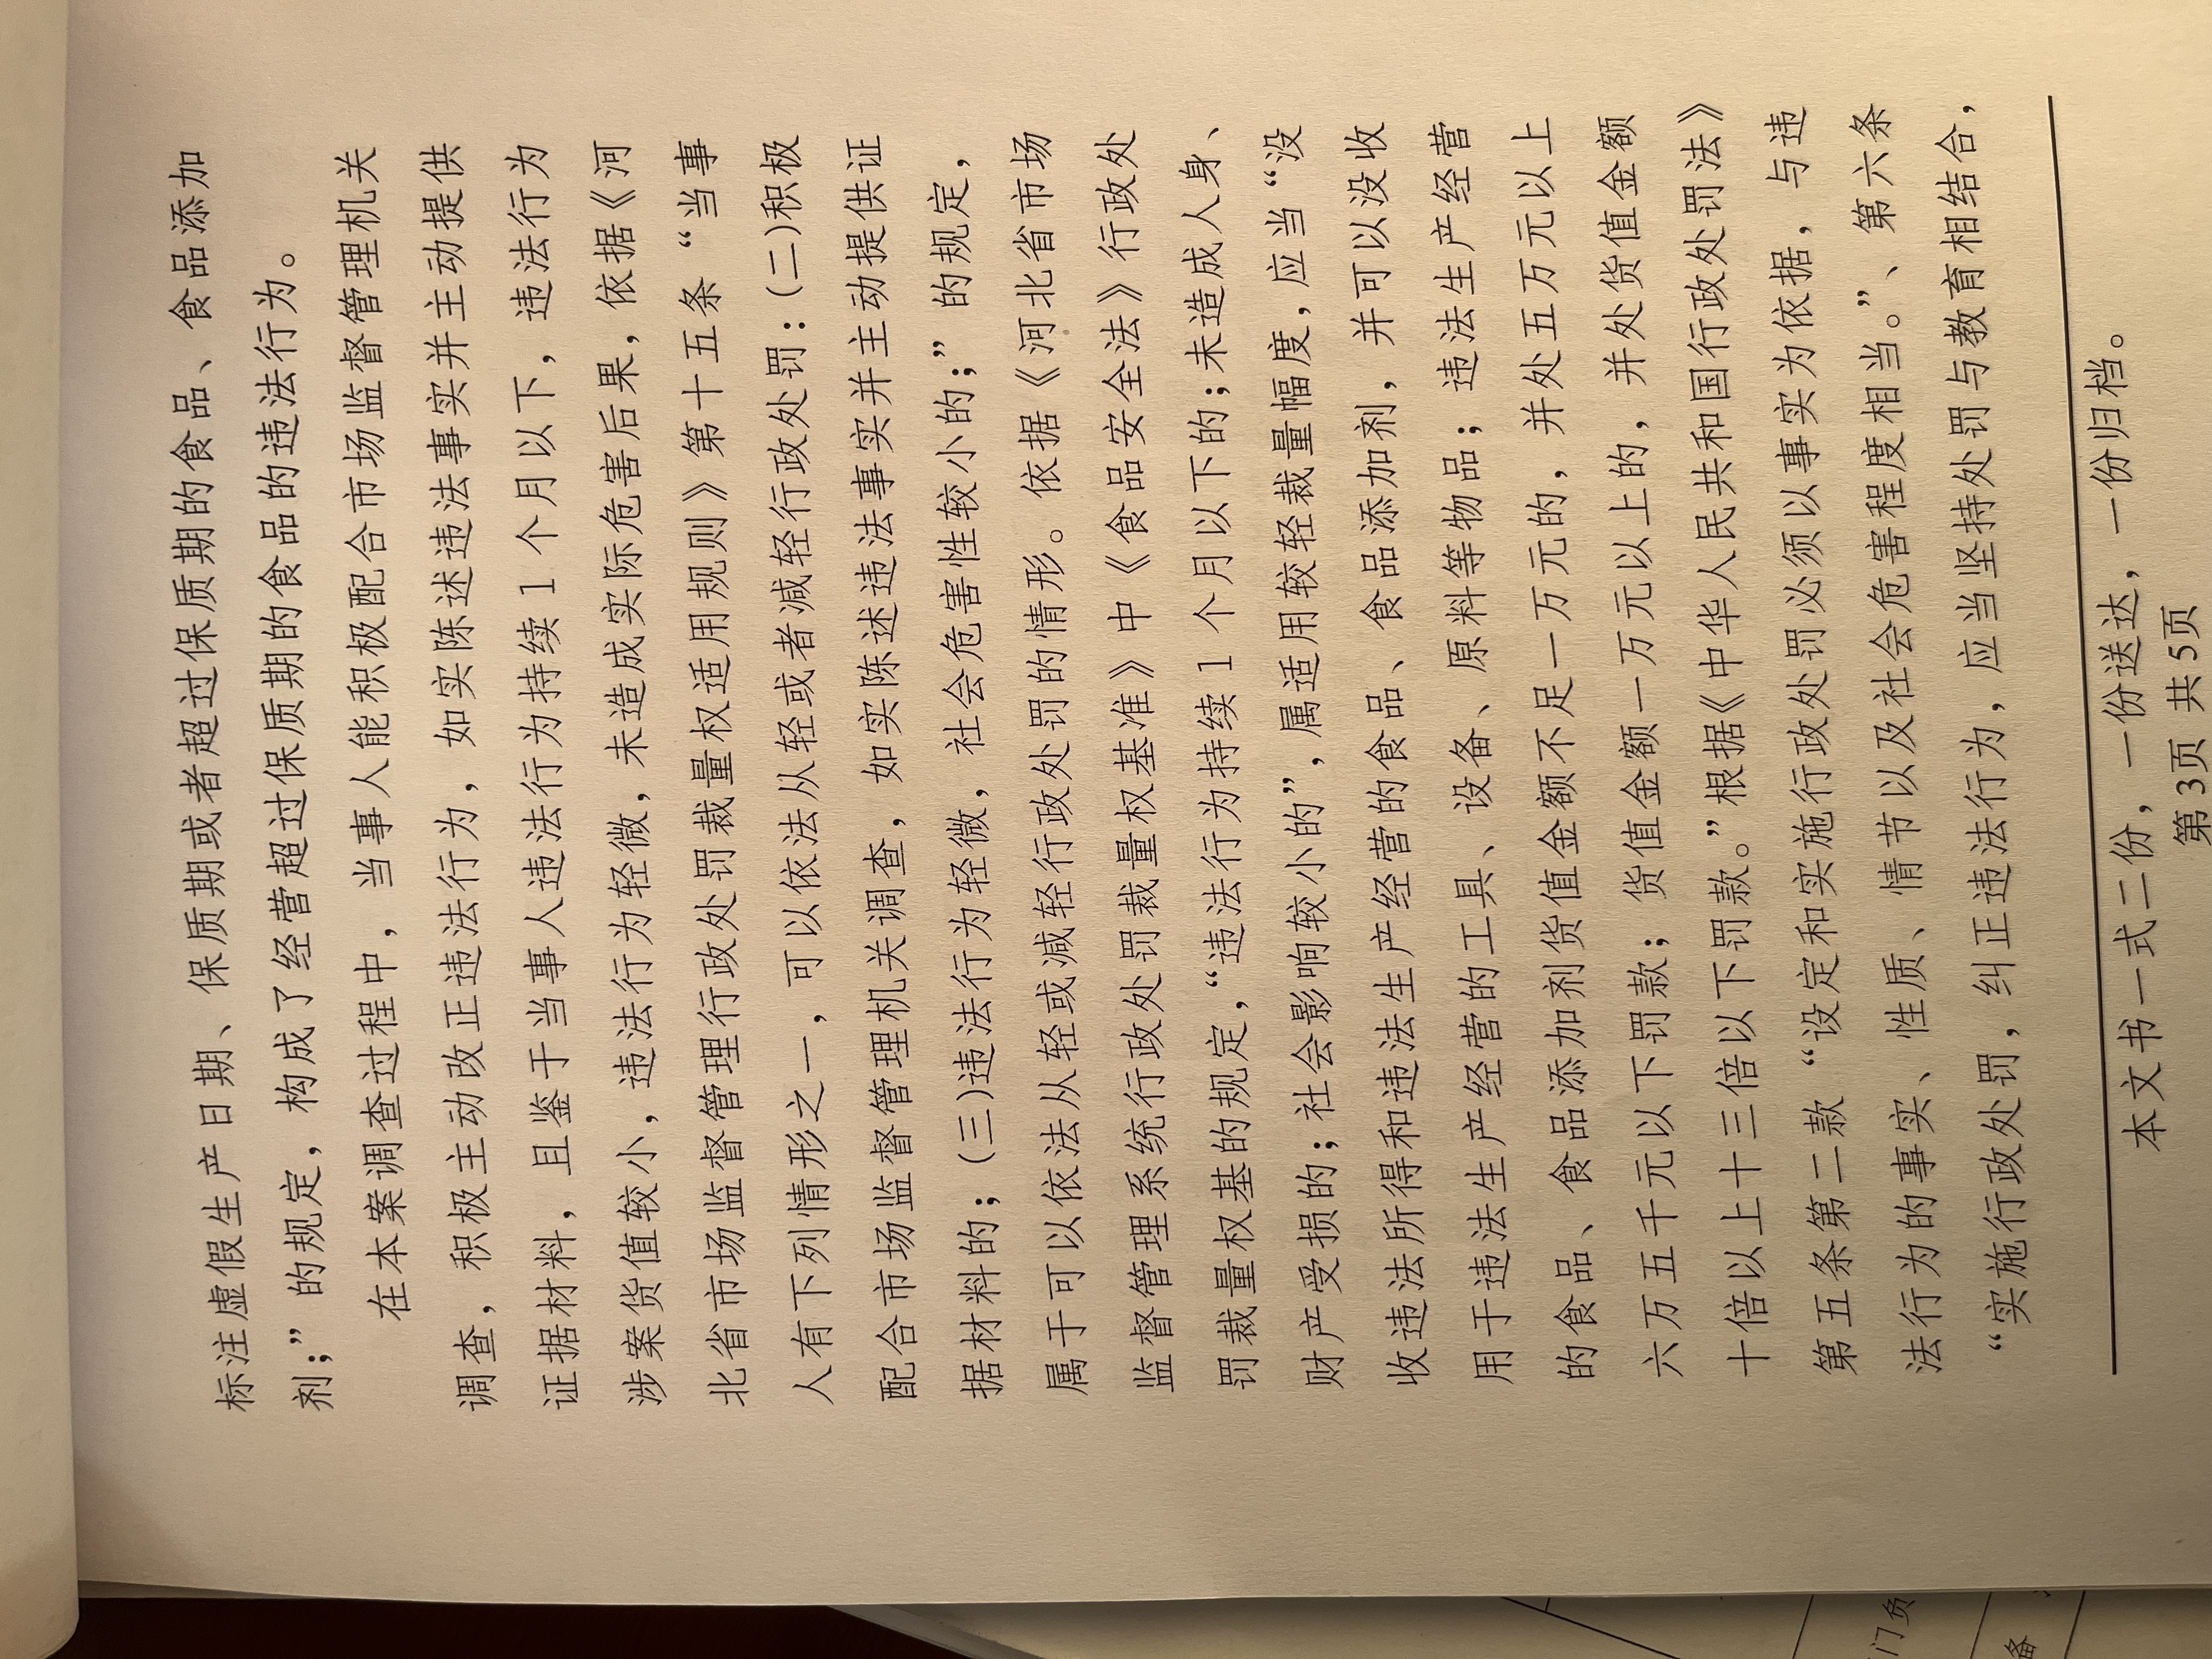 标注虚假生产日期、保质期或者超过保质期的食品、食品添加
剂;”的规定，构成了经营超过保质期的食品的违法行为。
在本案调查过程中，当事人能积极配合市场监督管理机关
调查，积极主动改正违法行为，如实陈述违法事实并主动提供
证据材料，且鉴于当事人违法行为持续1个月以下，违法行为
涉案货值较小，违法行为轻微，未造成实际危害后果，依据《河
北省市场监督管理行政处罚裁量权适用规则》第十五条“当事
人有下列情形之一，可以依法从轻或者减轻行政处罚:(二)积极
配合市场监督管理机关调查，如实陈述违法事实并主动提供证
据材料的；(三)违法行为轻微，社会危害性较小的;”的规定，
属于可以依法从轻或减轻行政处罚的情形。依据《河北省市场
监督管理系统行政处罚裁量权基准》中《食品安全法》行政处
罚裁量权基的规定，“违法行为持续1个月以下的;未造成人身、
财产受损的;社会影响较小的”,属适用较轻裁量幅度,应当“没
收违法所得和违法生产经营的食品、食品添加剂，并可以没收
用于违法生产经营的工具、设备、原料等物品；违法生产经营
的食品、食品添加剂货值金额不足一万元的，并处五万元以上
六万五千元以下罚款；货值金额一万元以上的，并处货值金额
十倍以上十三倍以下罚款。”根据《中华人民共和国行政处罚法》
第五条第二款“设定和实施行政处罚必须以事实为依据，与违
法行为的事实、性质、情节以及社会危害程度相当。”、第六条
“实施行政处罚，纠正违法行为，应当坚持处罚与教育相结合，
本文书一式二份，一份送达，一份归档。
第3页 共5页
门负
备